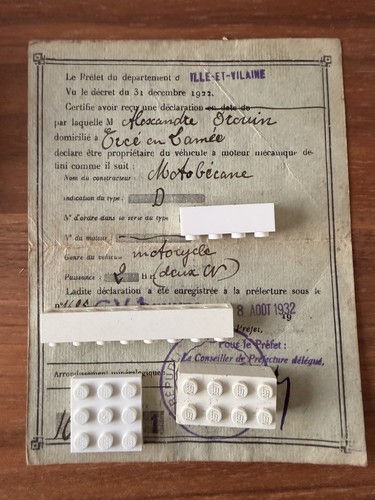 Le Préfet du département d ILLE-ET-VILAINE
Vu le décret du 31 décembre 1922.
Certifie avoir reçu une déclaration en date du
par laquelle M Alexandre Drouin
domicilié à Ercé en Lamée
déclare être propriétaire du véhicule à moteur mécanique dé-
fini comme il suit :
Nom du constructeur : Motobécane
Indication du type : D
N° d'ordre dans la série du type
N° du moteur :
Genre du véhicule motocycle
Puissance : 2 (deux CV)
Ladite déclaration a été enregistrée à la préfecture sous le
n°
8 AOUT 1932
19
Préfet,
Pour le Préfet :
Le Conseiller de Préfecture délégué,
Arrondissement minéralogique